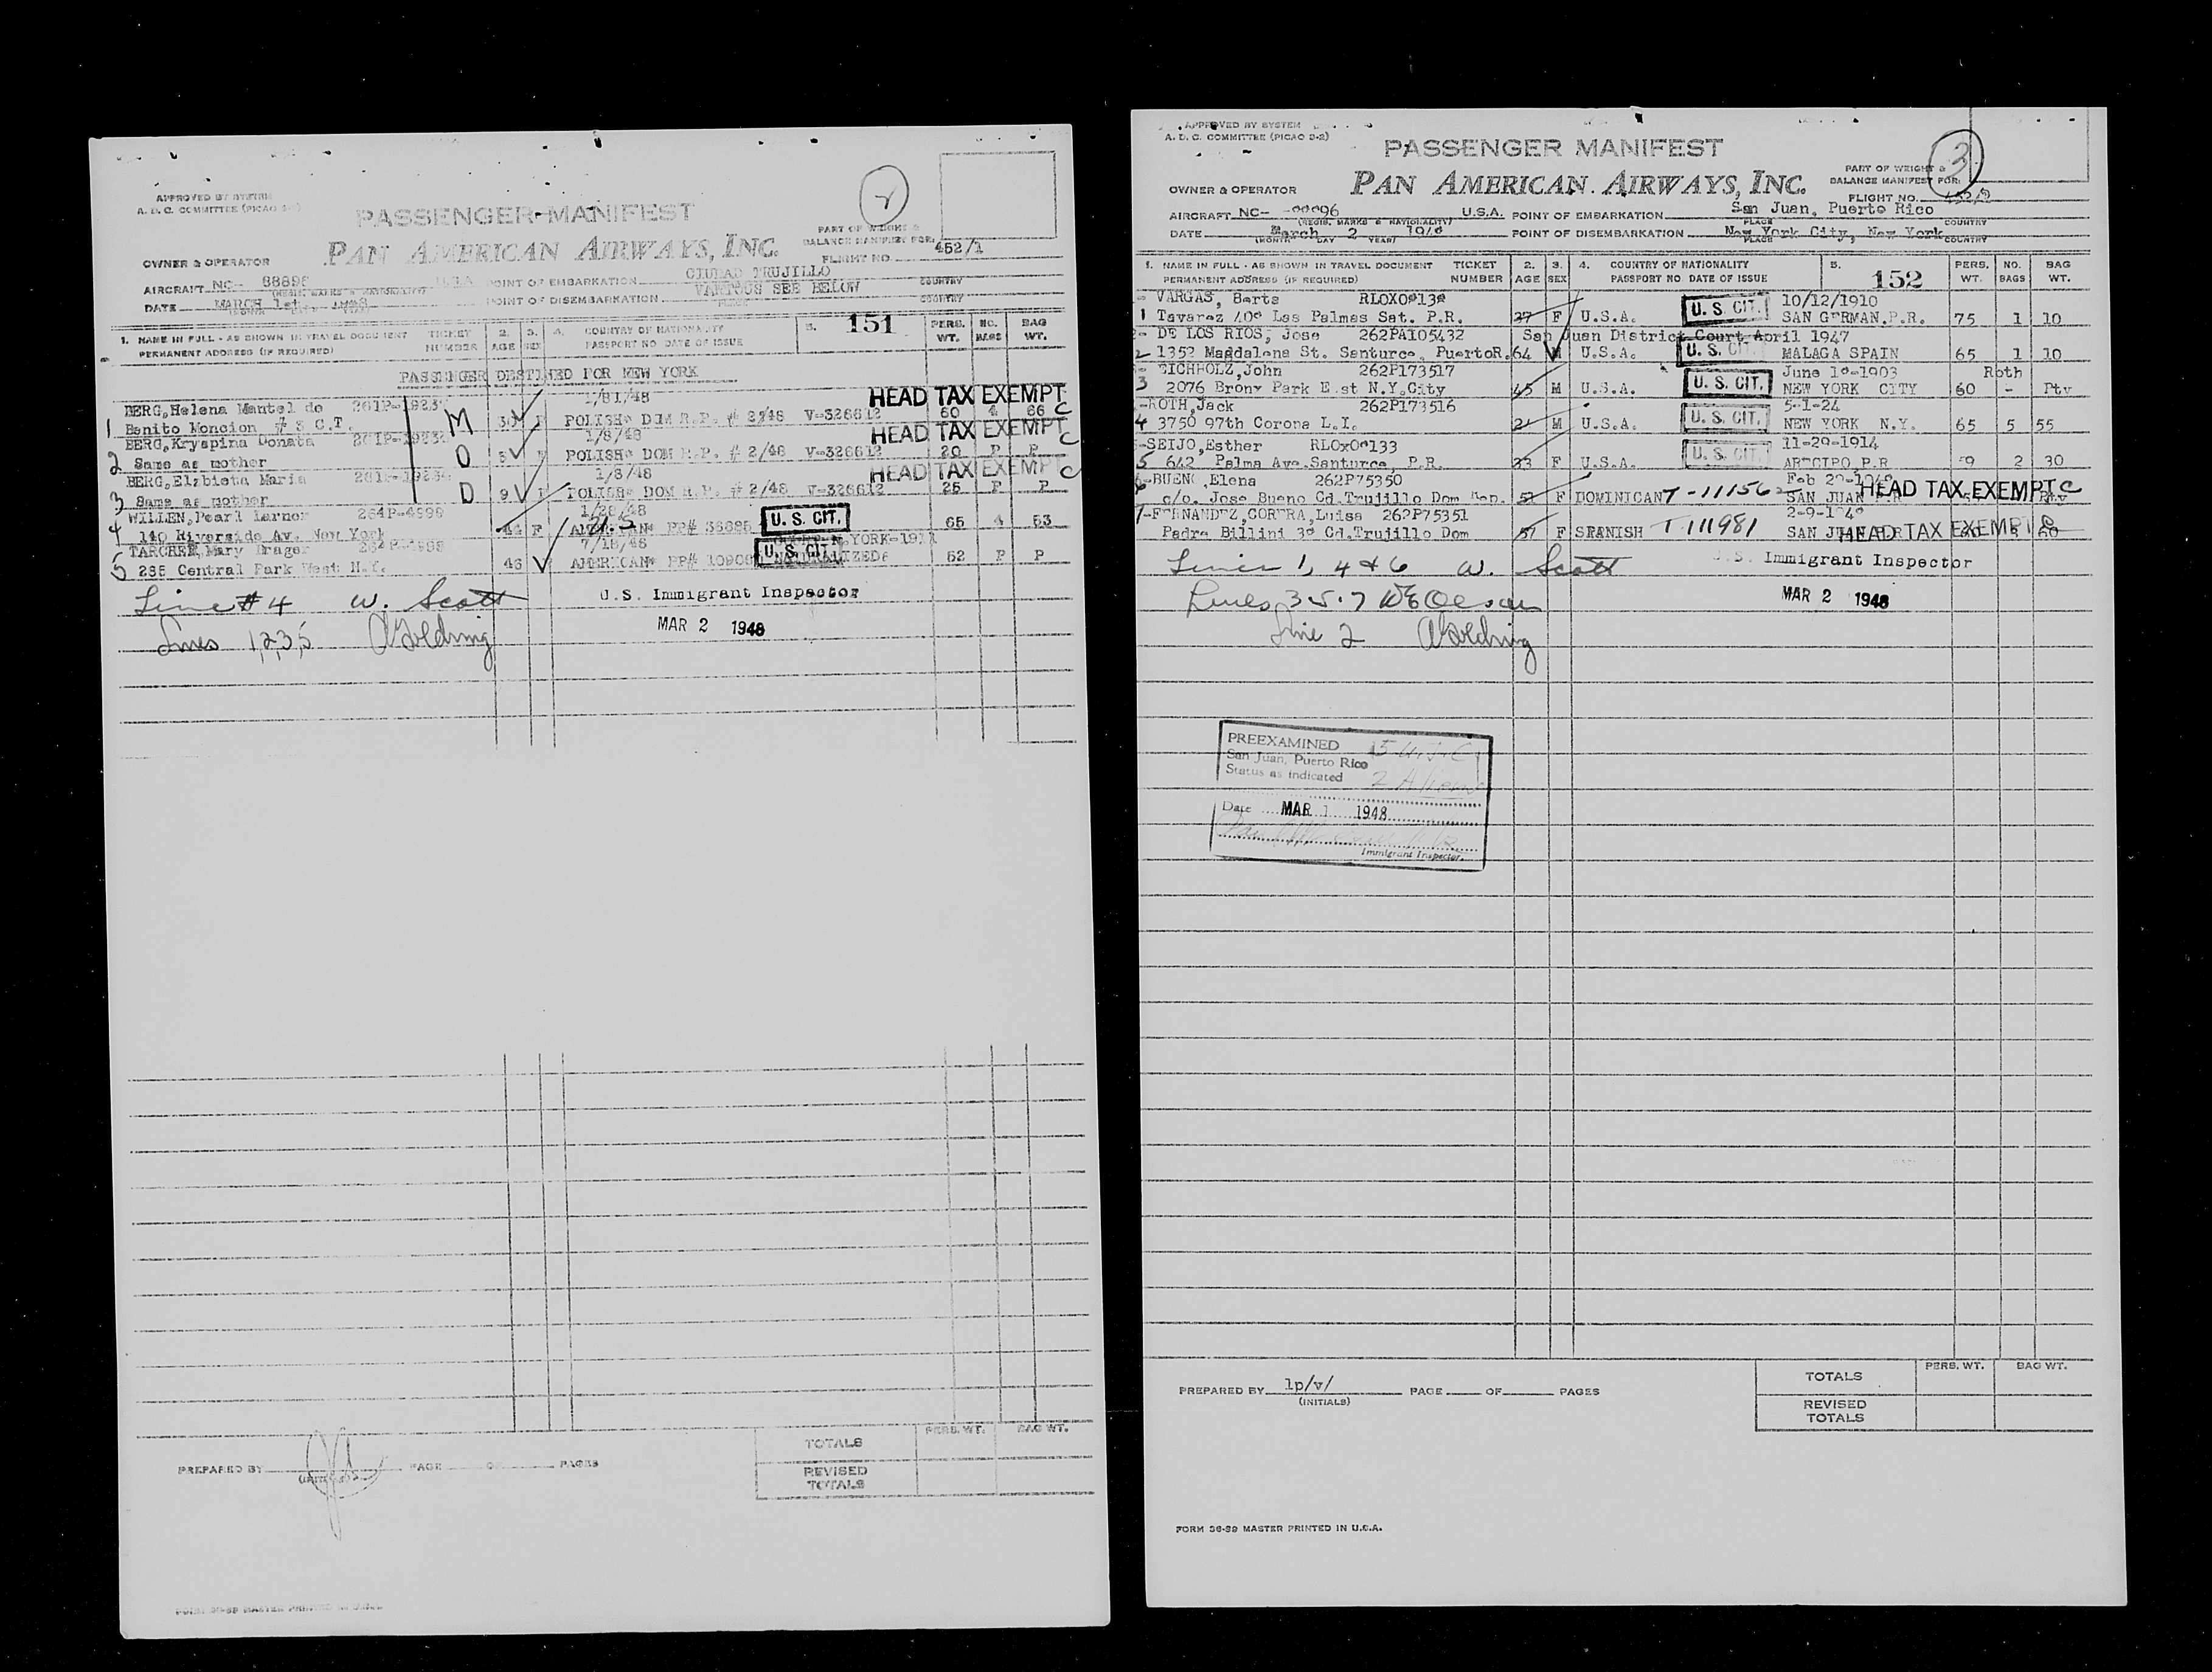 APPROVED BY SYSTEM
A. D. C. COMMITTEE (PICAO 2-2)
2
PASSENGER MANIFEST
PAN AMERICAN AIRWAYS, INC.
PART OF WEIGHT &
BALANCE MANIFEST FOR:
FLIGHT NO. 452/1
OWNER & OPERATOR
AIRCRAFT NC- 88896 POINT OF EMBARKATION CIUDAD TRUJILLO COUNTRY
(REGIS. MARKS & NATIONALITY)
DATE MARCH 1st, 1948 POINT OF DISEMBARKATION VARIOUS SEE BELOW COUNTRY
1. NAME IN FULL - AS SHOWN IN TRAVEL DOCUMENT TICKET NUMBER 2. AGE 3. SEX 4. COUNTRY OF NATIONALITY 5. 151 PERS. WT. NO. BAGS BAG WT.
PERMANENT ADDRESS (IF REQUIRED) PASSPORT NO DATE OF ISSUE
PASSENGER DESTINED FOR NEW YORK
HEAD TAX EXEMPT
BERG, Helena Mantel de
1 Benito Moncion # 3 C.T. M POLISH* DOM R.P. # 2/48 V-326612 60 4 66 C
BERG, Kryspina Donata 1/8/48 HEAD TAX EXEMPT
2 Same as mother D POLISH* DOM R.P. # 2/48 V-326612 20 P P C
BERG, Elzbieta Maria 1/8/48 HEAD TAX EXEMPT
3 Same as mother D 9 POLISH* DOM R.P. # 2/48 V-326612 25 P P C
WILLEN, Pearl Larner 264P-4999 1/28/48
4 140 Riverside Av. New York 44 F AMERICAN* PP# 36685 U. S. CIT. 65 4 53
TARCHER, Mary Drager 264P-4998 7/18/48
5 285 Central Park West N.Y. 46 AMERICAN* PP# U. S. CIT. 62 P P
Line # 4 W. Scott U.S. Immigrant Inspector
Lines 1,2,3,5 A Goldring MAR 2 1948
PREPARED BY (INITIALS) PAGE OF PAGES
TOTALS PERS. WT. BAG WT.
REVISED
TOTALS
FORM 36-39 MASTER PRINTED IN U.S.A.
APPROVED BY SYSTEM
A. D. C. COMMITTEE (PICAO 2-2)
3
PASSENGER MANIFEST
PAN AMERICAN AIRWAYS, INC.
PART OF WEIGHT &
BALANCE MANIFEST FOR:
FLIGHT NO. 452/2
OWNER & OPERATOR
AIRCRAFT NC- U.S.A. POINT OF EMBARKATION San Juan, Puerto Rico
(REGIS. MARKS & NATIONALITY) PLACE COUNTRY
DATE March 2 1948 POINT OF DISEMBARKATION New York City, New York
(MONTH DAY YEAR) PLACE COUNTRY
1. NAME IN FULL - AS SHOWN IN TRAVEL DOCUMENT TICKET 2. 3. 4. COUNTRY OF NATIONALITY 5. 152 PERS. NO. BAG
PERMANENT ADDRESS (IF REQUIRED) NUMBER AGE SEX PASSPORT NO DATE OF ISSUE WT. BAGS WT.
VARGAS, Berta U. S. CIT. 10/12/1910
1 Tavarez 408 Las Palmas Sat. P.R. 37 F U.S.A. SAN GERMAN, P.R. 75 1 10
DE LOS RIOS, Jose 262PAI05432 San Juan District Court April 1947
2 1352 Magdalena St. Santurce, PuertoR. 64 M U.S.A. U. S. CIT. MALAGA SPAIN 65 1 10
EICHHOLZ, John 262P173517 June 18-1903 Roth
3 2076 Bronx Park East N.Y.City 45 M U.S.A. U. S. CIT. NEW YORK CITY 60 - Pty
ROTH, Jack 262P173516 5-1-24
4 3750 97th Corona L.I. M U.S.A. U. S. CIT. NEW YORK N.Y. 65 5 55
SEIJO, Esther 11-29-1914
5 642 Palma Ave. Santurce, P.R. 33 F U.S.A. U. S. CIT. ARECIPO, P.R. 2 30
BUENO, Elena 262P75350
6 c/o. Jose Bueno Cd. Trujillo Dom Rep. F DOMINICAN T-11156 SAN JUAN P.R. HEAD TAX EXEMPT C
7 FERNANDEZ, CORTRA, Luisa 262P75351 2-9-1948
Padre Billini 38 Cd. Trujillo Dom F SPANISH T111981 SAN JUAN P.R. HEAD TAX EXEMPT C
Lines 1, 4 & 6 W. Scott U.S. Immigrant Inspector
Lines 3-5-7 MAR 2 1948
Line 2 A Goldring
PREEXAMINED 5 U.S.C.
San Juan, Puerto Rico
Status as indicated 2 Aliens
Date MAR 1 1948
Immigrant Inspector.
PREPARED BY lp/v/ PAGE OF PAGES
(INITIALS)
TOTALS PERS. WT. BAG WT.
REVISED
TOTALS
FORM 36-39 MASTER PRINTED IN U.S.A.